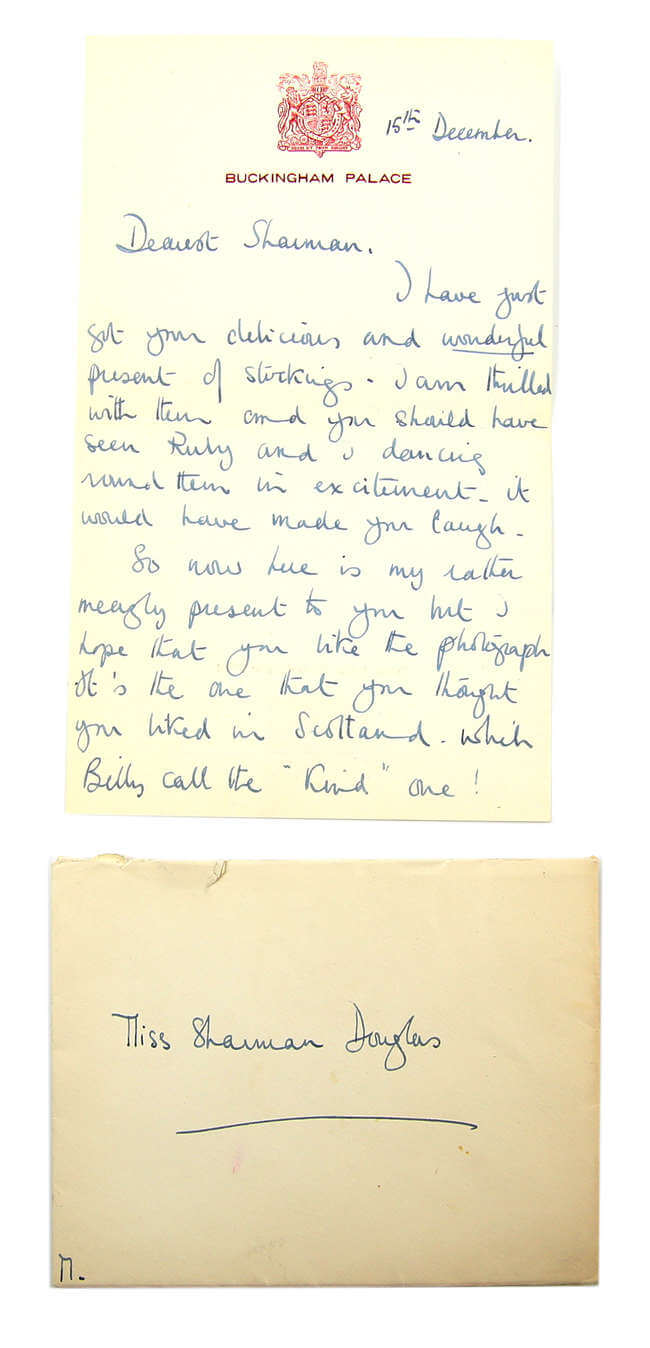 15th December.
BUCKINGHAM PALACE
Dearest Sharman.
I have just
got your delicious and wonderful
present of stockings. I am thrilled
with them and you should have
seen Ruby and I dancing
round them in excitement - it
would have made you laugh -
So now here is my rather
meagly present to you but I
hope that you like the photograph
It's the one that you thought
you liked in Scotland. which
Billy call the "Kind" one!
Miss Sharman Douglas
M.